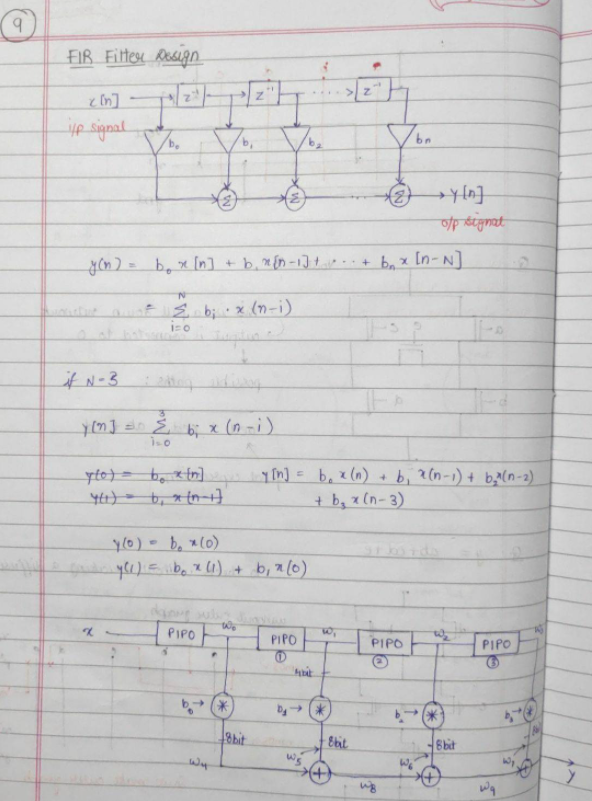 9
FIR Filter Design
x[n] z⁻¹ z⁻¹ ..... z⁻¹
i/p signal
b₀ b₁ b₂ bn
Σ Σ ... Σ y[n]
o/p signal
y(n) = b₀ x[n] + b₁ x[n-1] + ... + bn x[n-N]
= Σ bᵢ · x(n-i)
N
i=0
if N-3
y[n] = Σ bᵢ x(n-i)
3
i=0
y(0) = b₀ x[n] y[n] = b₀ x(n) + b₁ x(n-1) + b₂x(n-2)
y(1) = b₁ x[n-1] + b₃ x(n-3)
y(0) = b₀ x(0)
y(1) = b₀ x(1) + b₁ x(0)
x PIPO w₀ PIPO w₁ PIPO w₂ PIPO w₃
① ② ③
4bit
b₀ → * b₁ → * b₂ → * b₃ → *
8bit 8bit 8bit 8b
w₄ w₅ w₆ w₇
+ + +
w₈ w₉ y